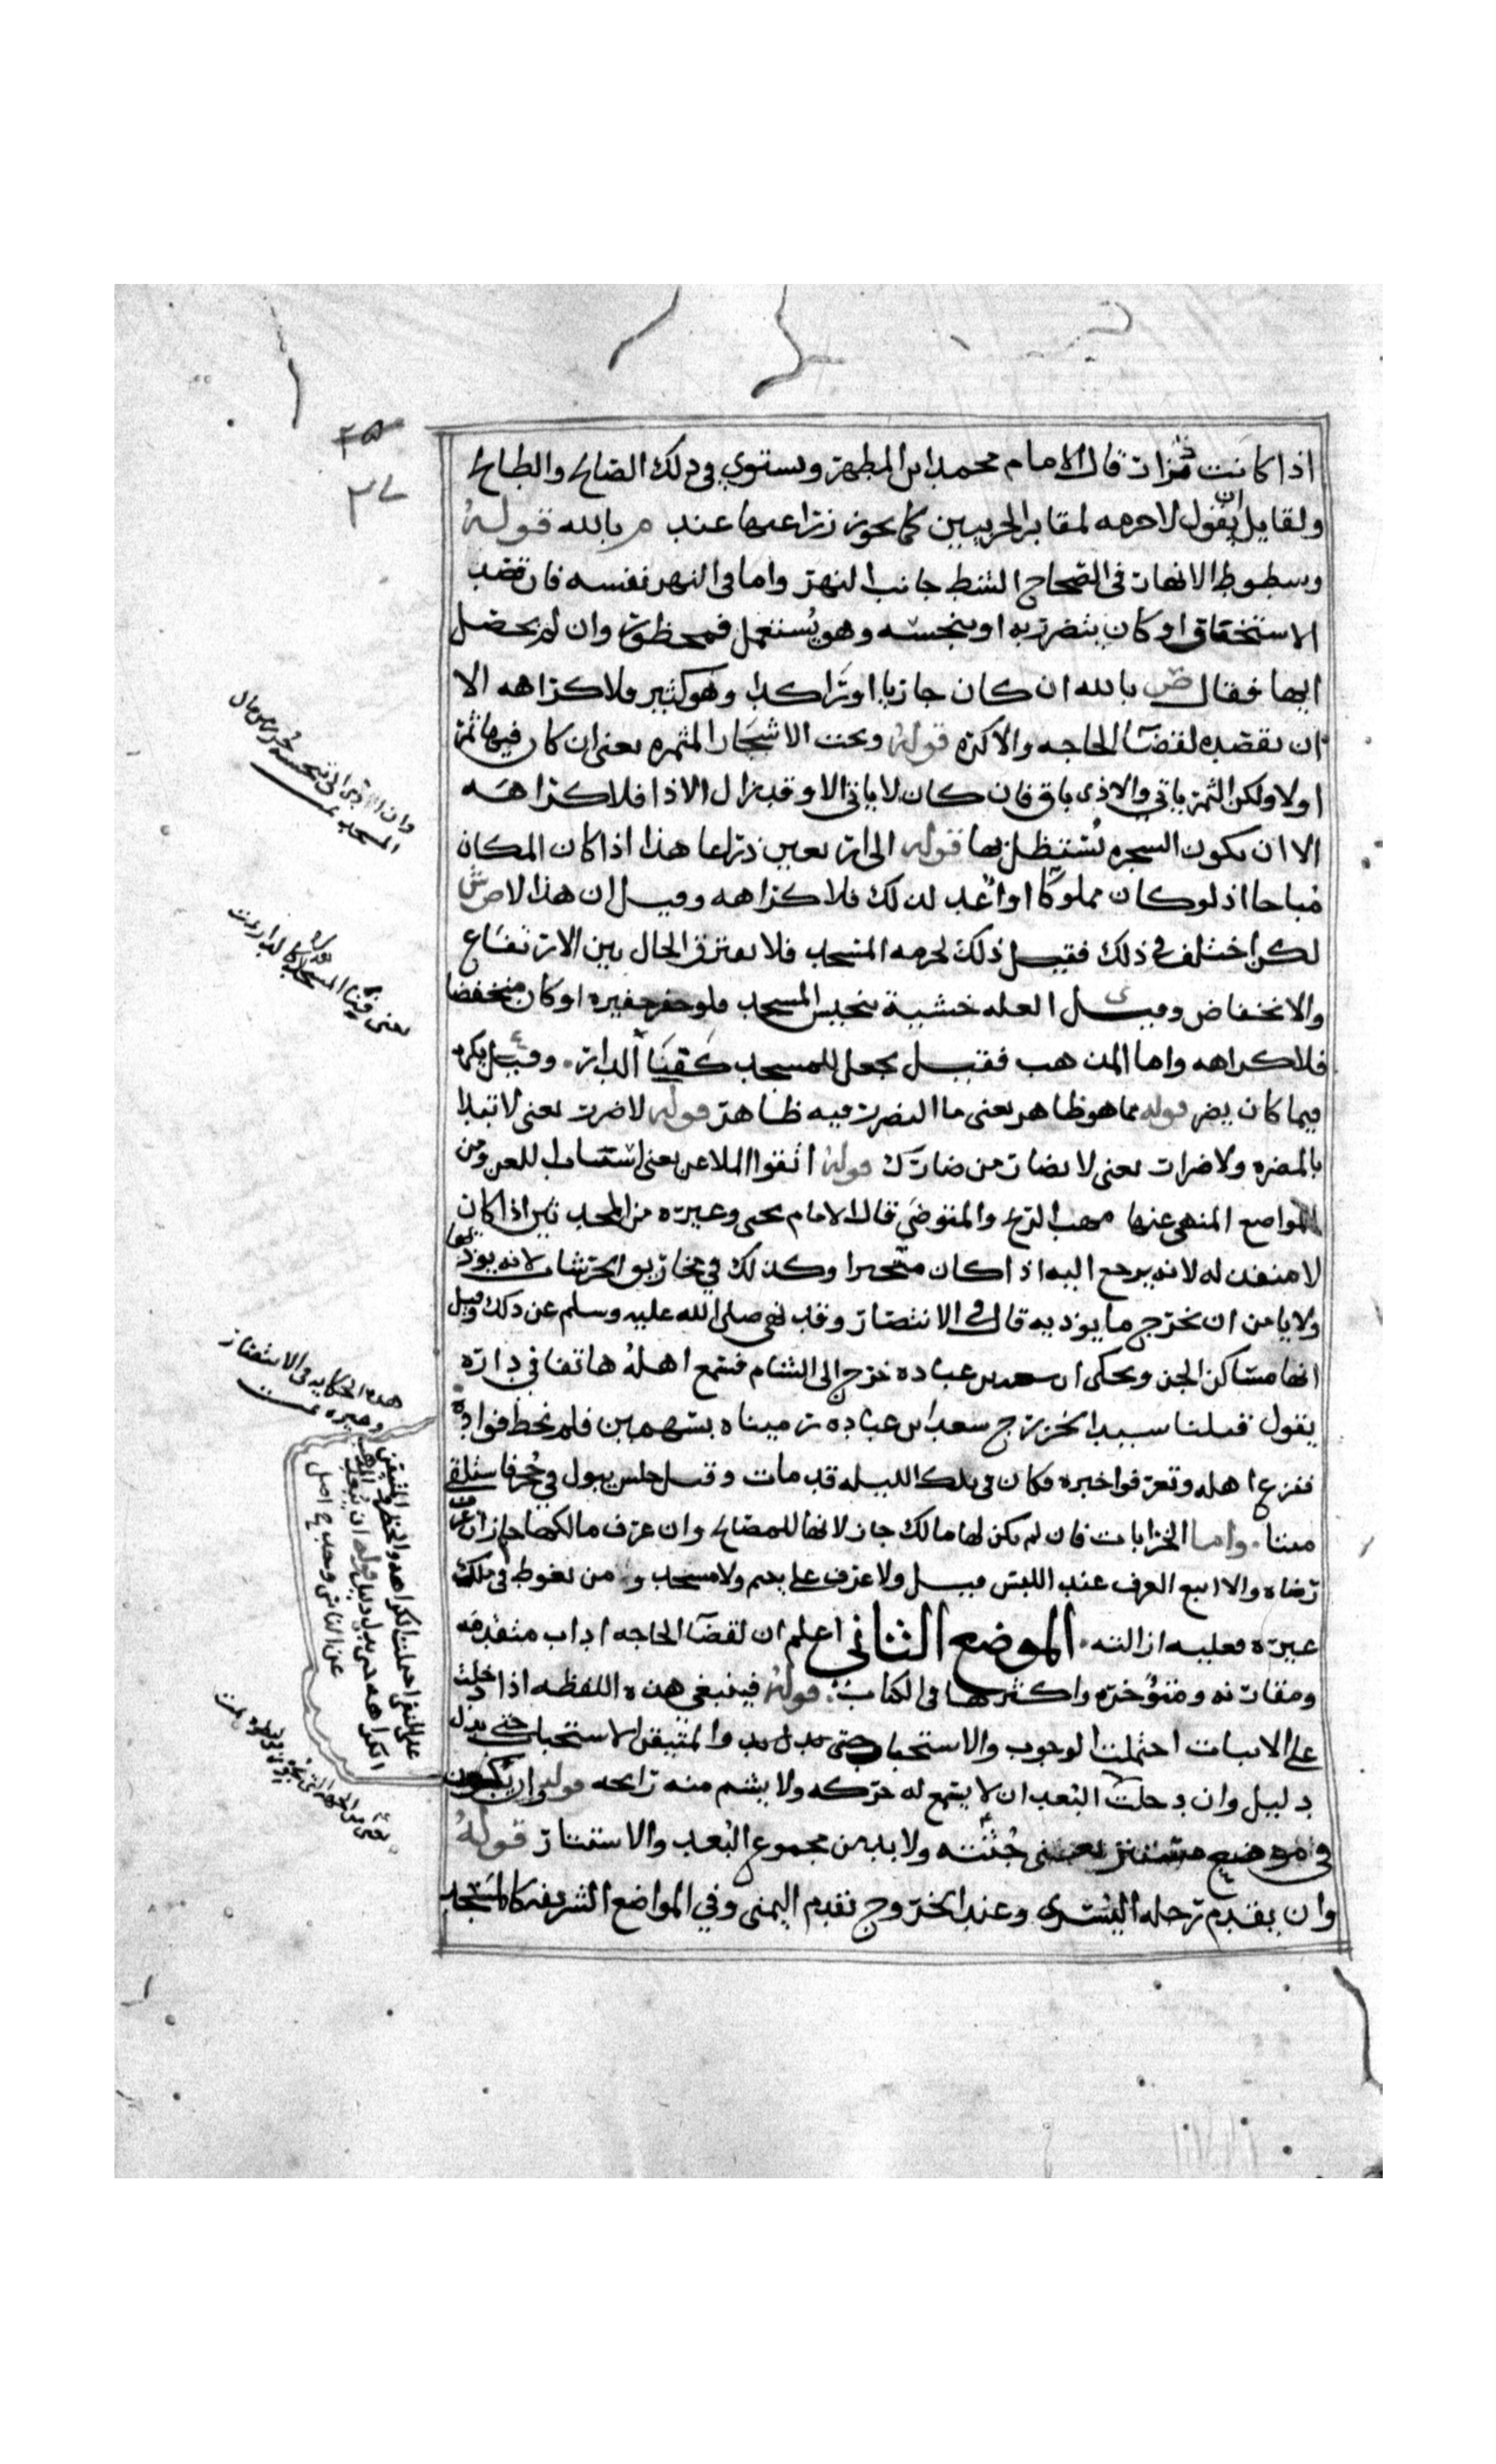 ٢٧
اذا كانت مزارت قال الامام محمد ابن المطهر ويستوي في ذلك الصالح والطالح
ولقايل ان يقول لا حرمه لمقابر الحربيين كما يجوز زراعتها عند م بالله قوله
وشطوط الانهار في الصحاح الشط جانب النهر واما في النهر نفسه فان قصد
الاستخفاف او كان يتضرر به او ينجسه وهو يستعمل فمحظور وان لم يحصل
ايها فقال ض بالله ان كان جاريا او راكدا وهو كثير فلا كراهه الا
ان يقصده لقضا الحاجه والا كره قوله وتحت الاشجار المثمره يعني ان كان فيها ثمر
او لا ولكن الثمر ياتي والاذى باق فان كان لا ياتي الا وقد زال الاذا فلا كراهه
الا ان يكون الشجره يستظل بها قوله الى اربعين ذراعا هذا اذا كان المكان
مباحا اذ لو كان مملوكا او اعد لذلك فلا كراهه وقيل ان هذا لا ض ش
لكن اختلف في ذلك فقيل ذلك لحرمه المسجد فلا يفترق الحال بين الارتفاع
والانخفاض وقيل العله خشية تنجيس المسجد فلو حفر حفيره او كان منخفضا
فلا كراهه واما المذهب فقيل يجعل للمسجد كفنا الدار وقيل يكره
فيما كان يضر قوله مما هو ظاهر يعني ما التضرر فيه ظاهر قوله لا ضرر يعني لا تبدا
بالمضره ولا ضرار يعني لا تضار من ضارك قوله اتقوا الملاعن يعني اسباب اللعن ومن
المواضع المنهي عنها مهب الريح والمتوضي قال الامام يحيى وغيره من المحدثين اذا كان
لا منفذ له لانه يرجع اليه اذا كان متحيرا وكذلك في مخاريق الحرشات لانه يوذيها
ولا يامن ان يخرج ما يوذيه قال في الانتصار وقد نهى صلى الله عليه وسلم عن ذلك وقيل
انها مساكن الجن ويحكى ان سعد بن عباده خرج الى الشام فسمع اهله هاتفا في داره
يقول قتلنا سيد الخزرج سعد ابن عباده رميناه بسهمين فلم نخط فواده
ففزع اهله وتعرفوا خبره فكان في تلك الليله قد مات وقيل جلس يبول في جحر فاستلقى
ميتا واما الخرابات فان لم يكن لها مالك جاز لانها للمصالح وان عرف مالكها جاز ان عرف
رضاه والا اتبع العرف عند اللبس قيل ولا عرف على يتيم ولا مسجد ومن تغوط في ملك
غيره فعليه ازالته الموضع الثاني اعلم ان لقضا الحاجه اداب متقدمه
ومقارنه ومتوخره واكثرها في الكتاب قوله فينبغي هذه اللفظه اذا دخلت
على الاثبات احتملت الوجوب والاستحباب والمتيقن الاستحباب حتى يدل
دليل وان دخلت البعد ان لا يسمع له حركه ولا يشم منه رايحه قوله وان يكون
في موضع مستتر يعني جثته ولا بد من مجموع البعد والاستتار قوله
وان يقدم رجله اليسرى وعند الخروج تقدم اليمنى وفي المواضع الشريفه كالمسجد
المسجد
هذه الحكايه في الاستغفار
وغيره تمت
على النفي احتملت الكراهه والحظر والمتيقن
الكراهه حتى يدل دليل قوله ان يبعد
عن الناس